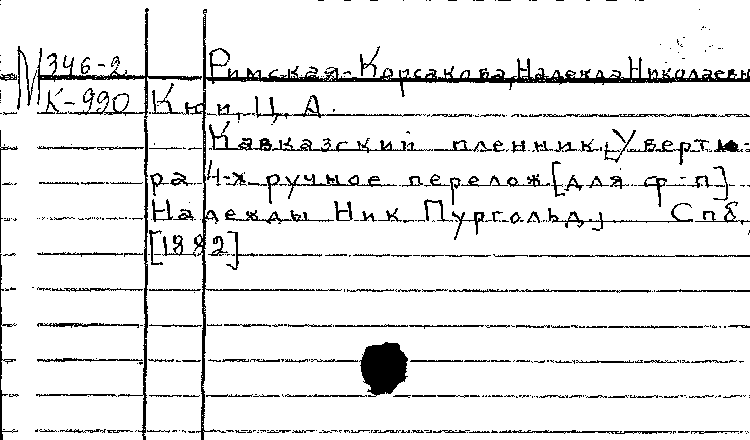 М 346-2 Римская-Корсакова, Надежда Николаевн
К-990 Кюи, Ц. А.
Кавказский пленник. [Увертю-
ра 4-х ручное перелож. [для ф-п]
Надежды Ник. Пургольд.] Спб.,
[1882]